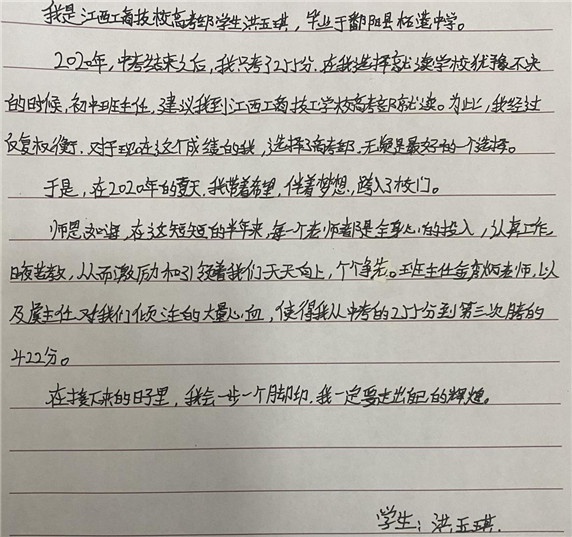 我是江西工商技校高考部学生洪玉琪，毕业于鄱阳县柘港中学。
2020年，中考结束之后，我只考了255分，在我选择就读学校犹豫不决
的时候，初中班主任，建议我到江西工商技工学校高考部就读。为此，我经过
反复权衡，对于现在这个成绩的我，选择了高考部，无疑是最好的一个选择。
于是，在2020年的夏天，我带着希望，伴着梦想，跨入了校门。
师恩如海，在这短短的半年来，每一个老师都是全身心的投入，认真工作，
日夜苦教，从而激励和引领着我们天天向上，个个争先。班主任金老师，以
及虞主任对我们倾注的大量心血，使得我从中考的255分到第三次月考的
422分。
在接下来的日子里，我会一步一个脚印，我一定要走出自己的辉煌。
学生：洪玉琪.